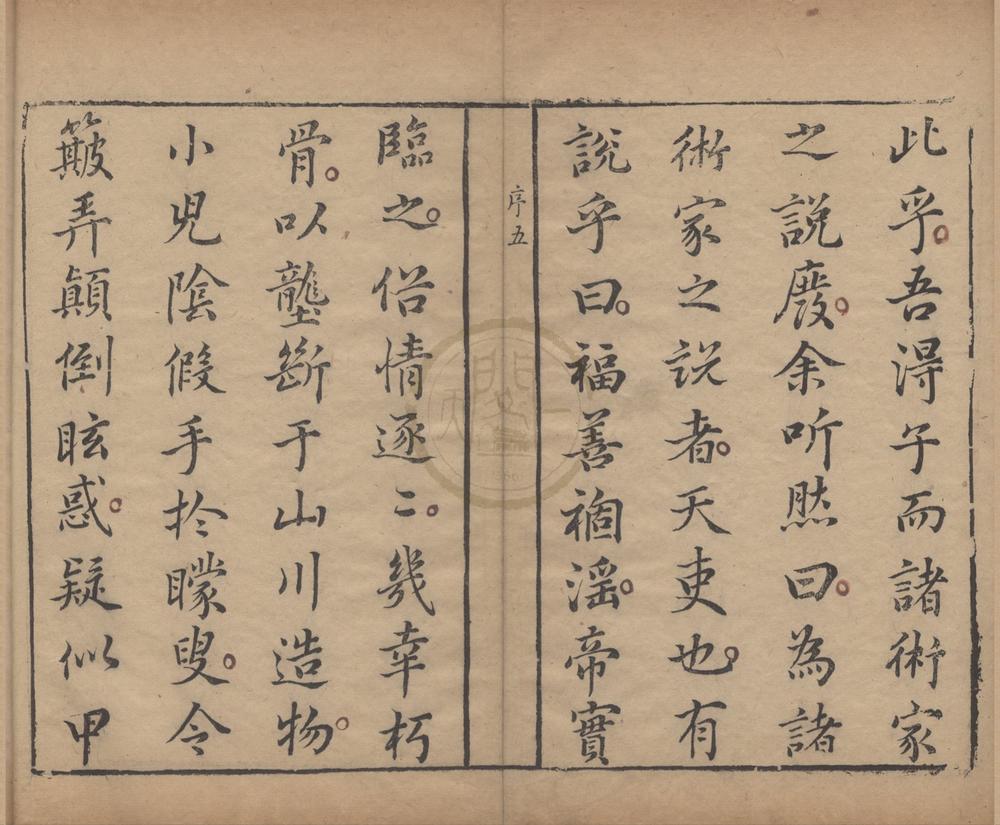 此乎吾淂午而諸術家
之説廢余听然曰為諸
術家之説者天吏也有
說乎曰福善禍淫帝實
序五
臨之俗情逐二幾幸朽
骨以壟斷于山川造物
小兒陰假手扵矇叟令
簸弄顛倒眩惑疑似甲